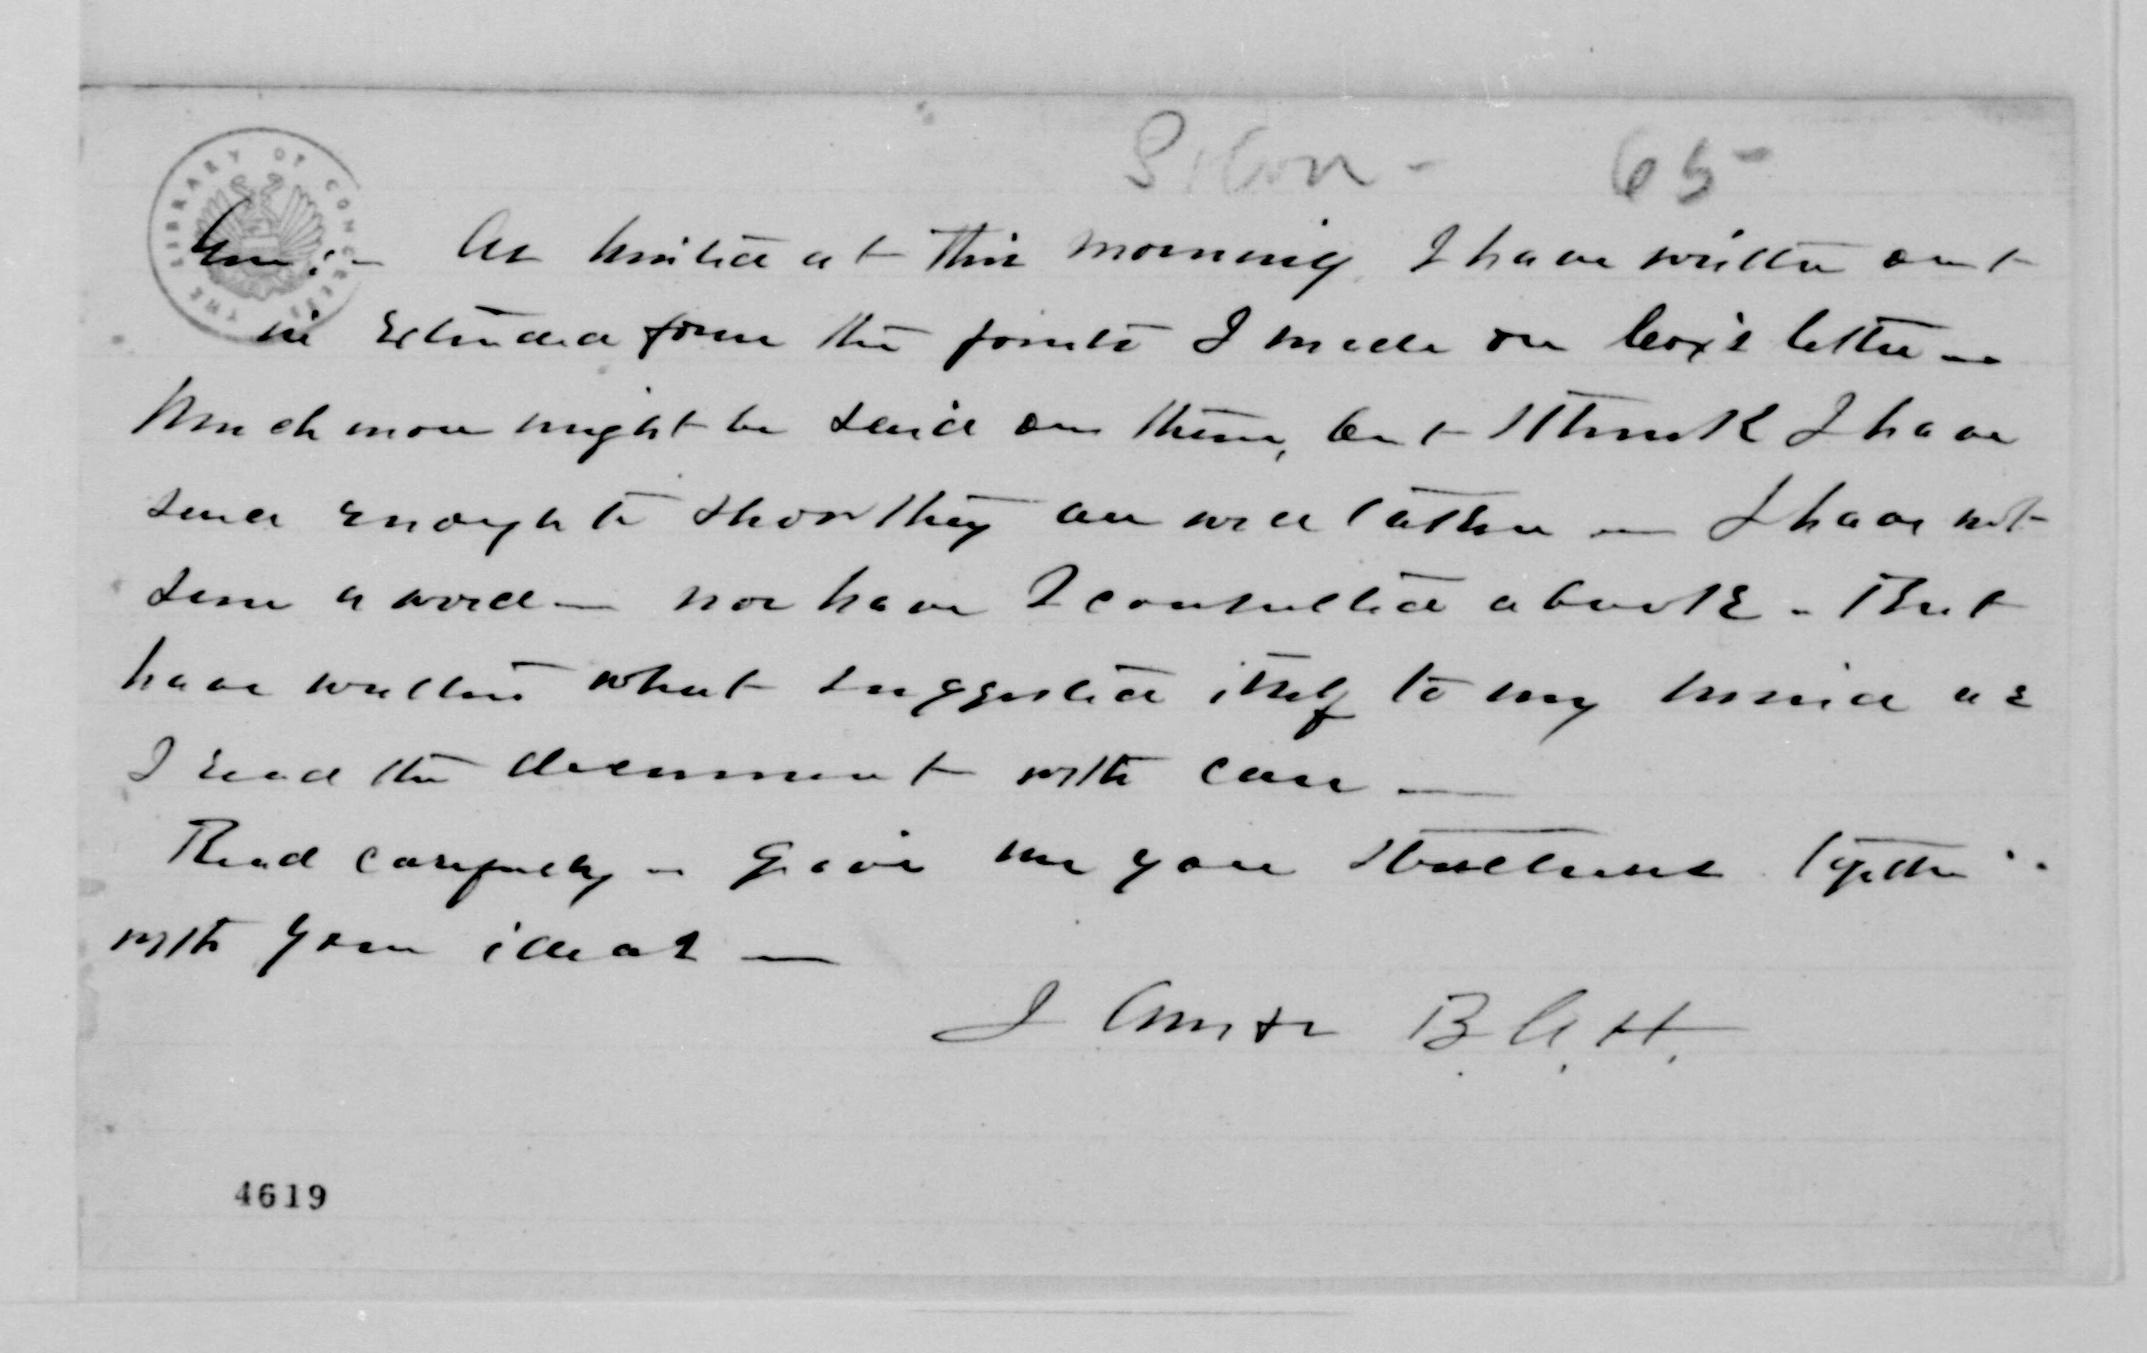 65
THE LIBRARY OF CONGRESS
As hinted at this morning I have written out
in extended form the points I made on Cox's letter
Much more might be said on them, but I think I have
said enough to show they are well taken — I have not
seen a word — nor have I consulted a book - But
have written what suggested itself to my mind as
I read the document with care —
Read carefully - give me your strictures together
with your ideas —
B. A. H.
4619